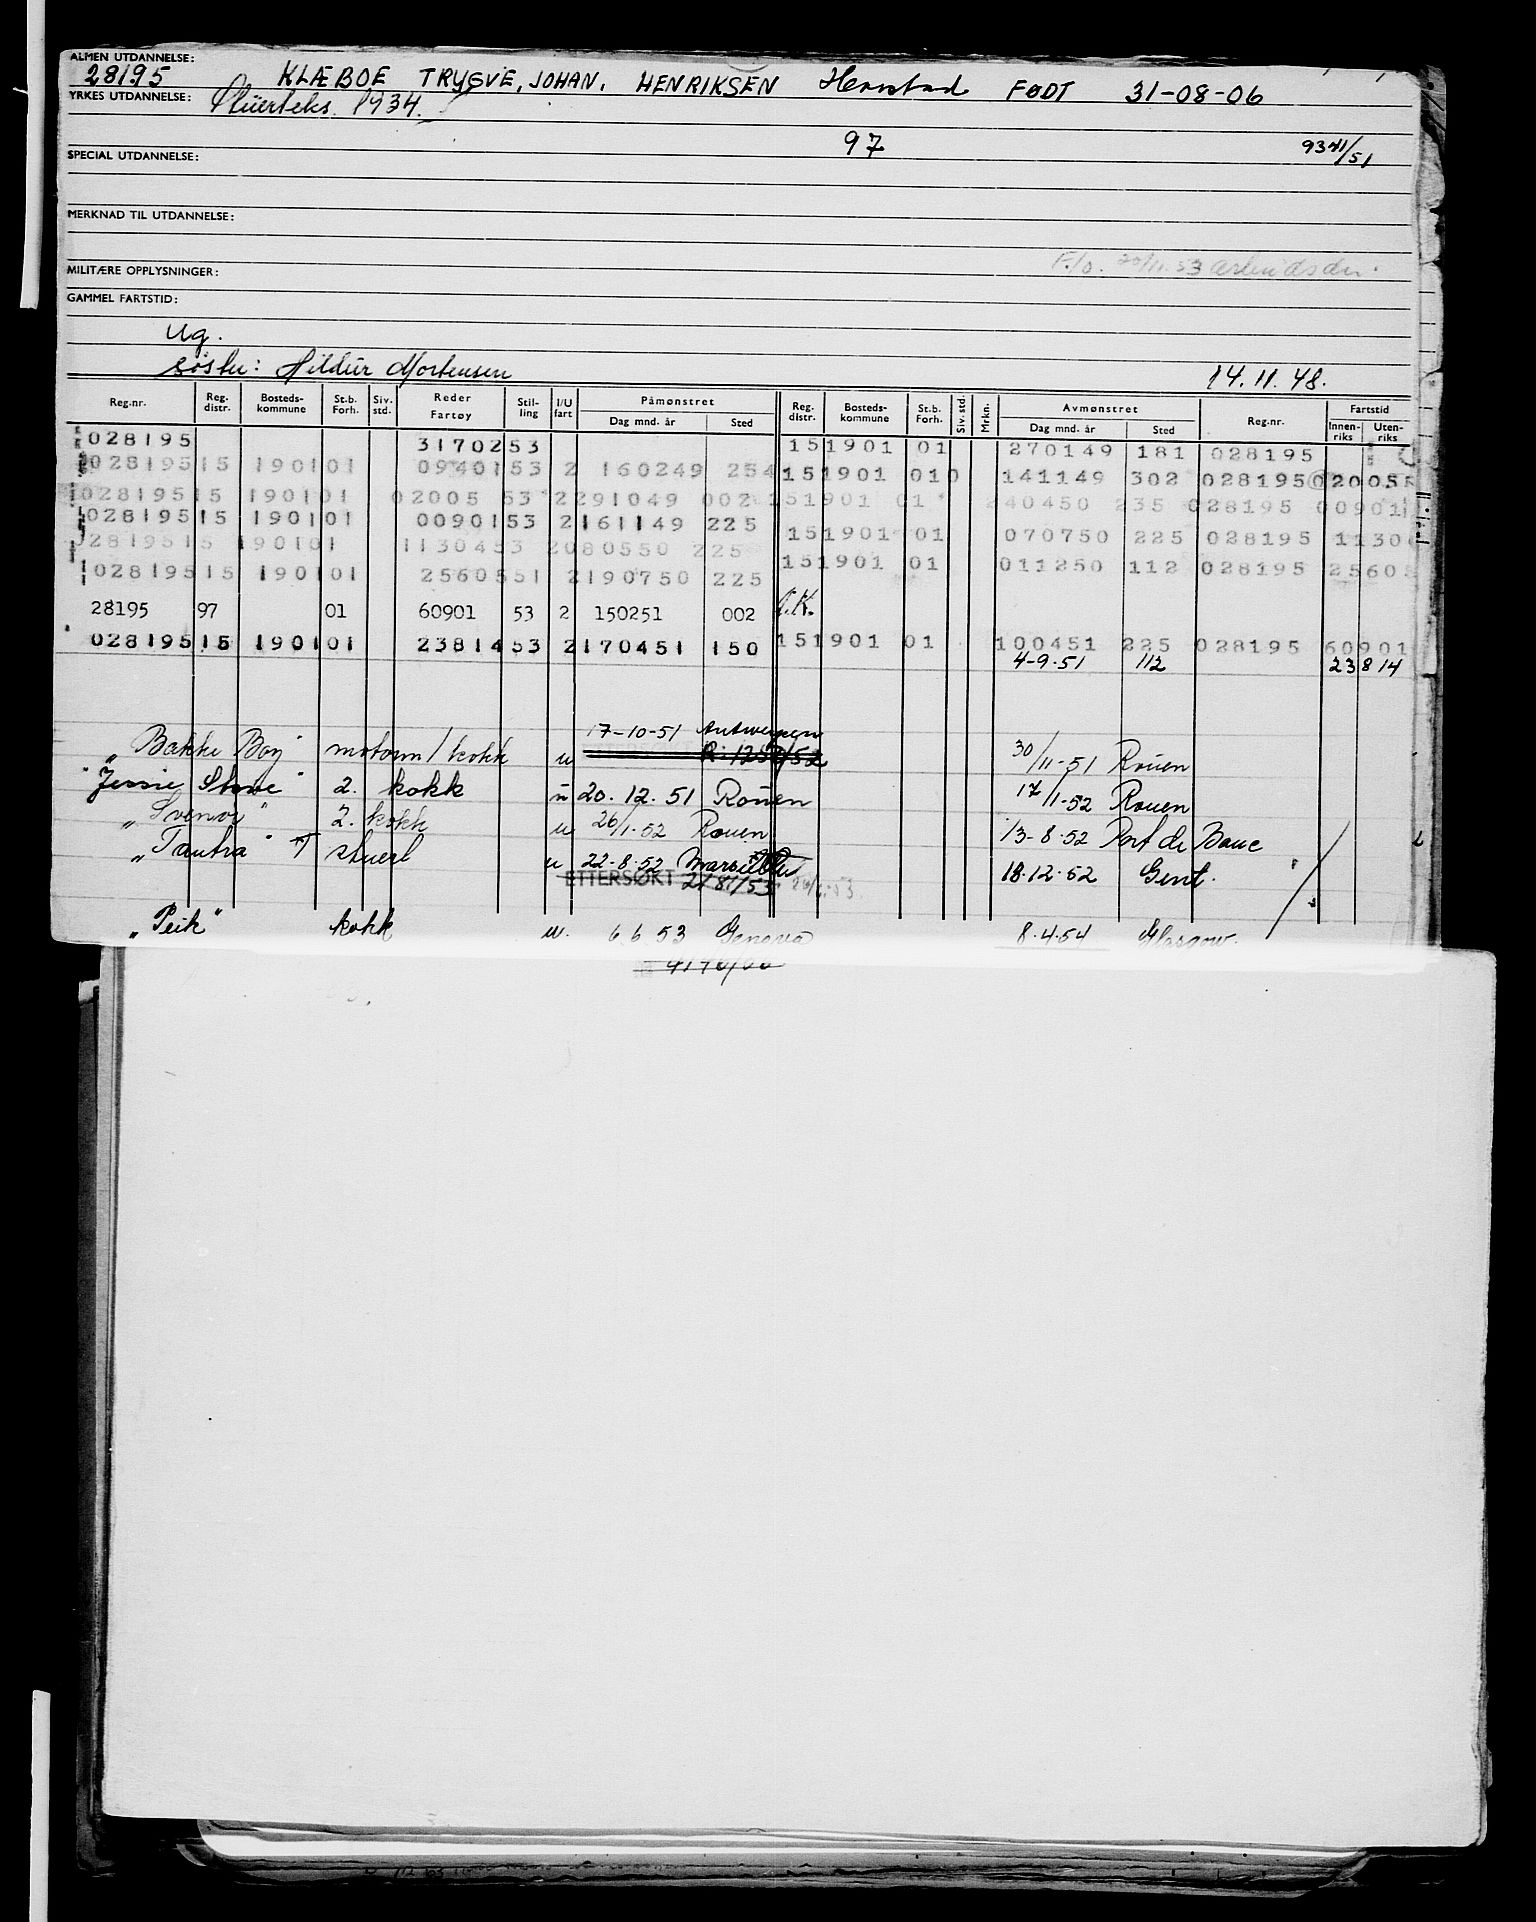 ALMEN UTDANNELSE:
28195 KLÆBOE TRYGVE, JOHAN, HENRIKSEN Harstad FØDT 31-08-06
YRKES UTDANNELSE: 1934.
97 9341/51
SPECIAL UTDANNELSE:
MERKNAD TIL UTDANNELSE:
F./o. 20/11.53
MILITÆRE OPPLYSNINGER:
GAMMEL FARTSTID:
ug.
søster: Hildur Mortensen 14.11.48.
Reg.nr. Reg. distr. Bosteds-kommune St.b. Forh. Siv. std. Reder Fartøy Stil-ling I/U fart Påmønstret Dag mnd. år Sted Reg. distr. Bosteds-kommune St.b. Forh. Siv. std. Mrkn. Avmønstret Dag mnd. år Sted Reg.nr. Fartstid Innen-riks Uten-riks
028195 31702 53 15 1901 01 270149 181 028195
028195 15 1901 01 09401 53 2 160249 254 15 1901 01 0 141149 302 028195 02005
028195 15 1901 01 02005 53 2 291049 002 151901 01 240450 235 028195 00901
028195 15 1901 01 00901 53 2 161149 225 15 1901 01 070750 225 028195 1130
028195 15 1901 01 11304 53 2 080550 225 15 1901 01 011250 112 028195 2560
028195 15 1901 01 25605 51 2 190750 225
28195 97 01 60901 53 2 150251 002 O.K.
028195 15 1901 01 23814 53 2 170451 150 15 1901 01 100451 225 028195 60901
4-9-51 112 23814
17-10-51 Antwerpen
"Bakke Boy" motorm/kokk u 30/11-51 Rouen
"Jessie Stove" 2. kokk u 20.12.51 Rouen 17/1-52 Rouen
"Svenør" 2. kokk u 26/1-52 Rouen 13-8-52 Port de Bouc
"Tautra" T stuert u 22-8-52 18-12-52 Gent.
ETTERSØKT 2181/53
"Peik" kokk u. 6 6 53 Genova 8.4.54 Glasgow.